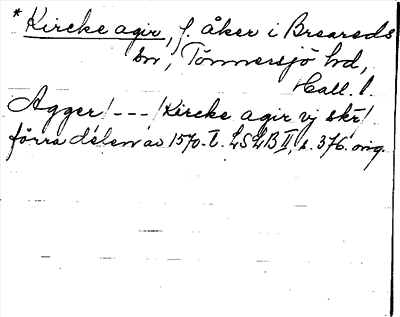 * Kircke agir, f. åker i Breareds
sn, Tönnersjö hd,
Hall. l.
Agger/ --- /Kircke agir vj skr/
förra delen av 1570-t. LSLB II, s. 376. orig.